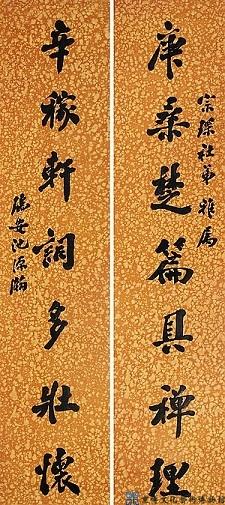 庚桑楚篇具禪理
社弟雅属
辛稼軒詞多壯懷
瑞安池源瀚